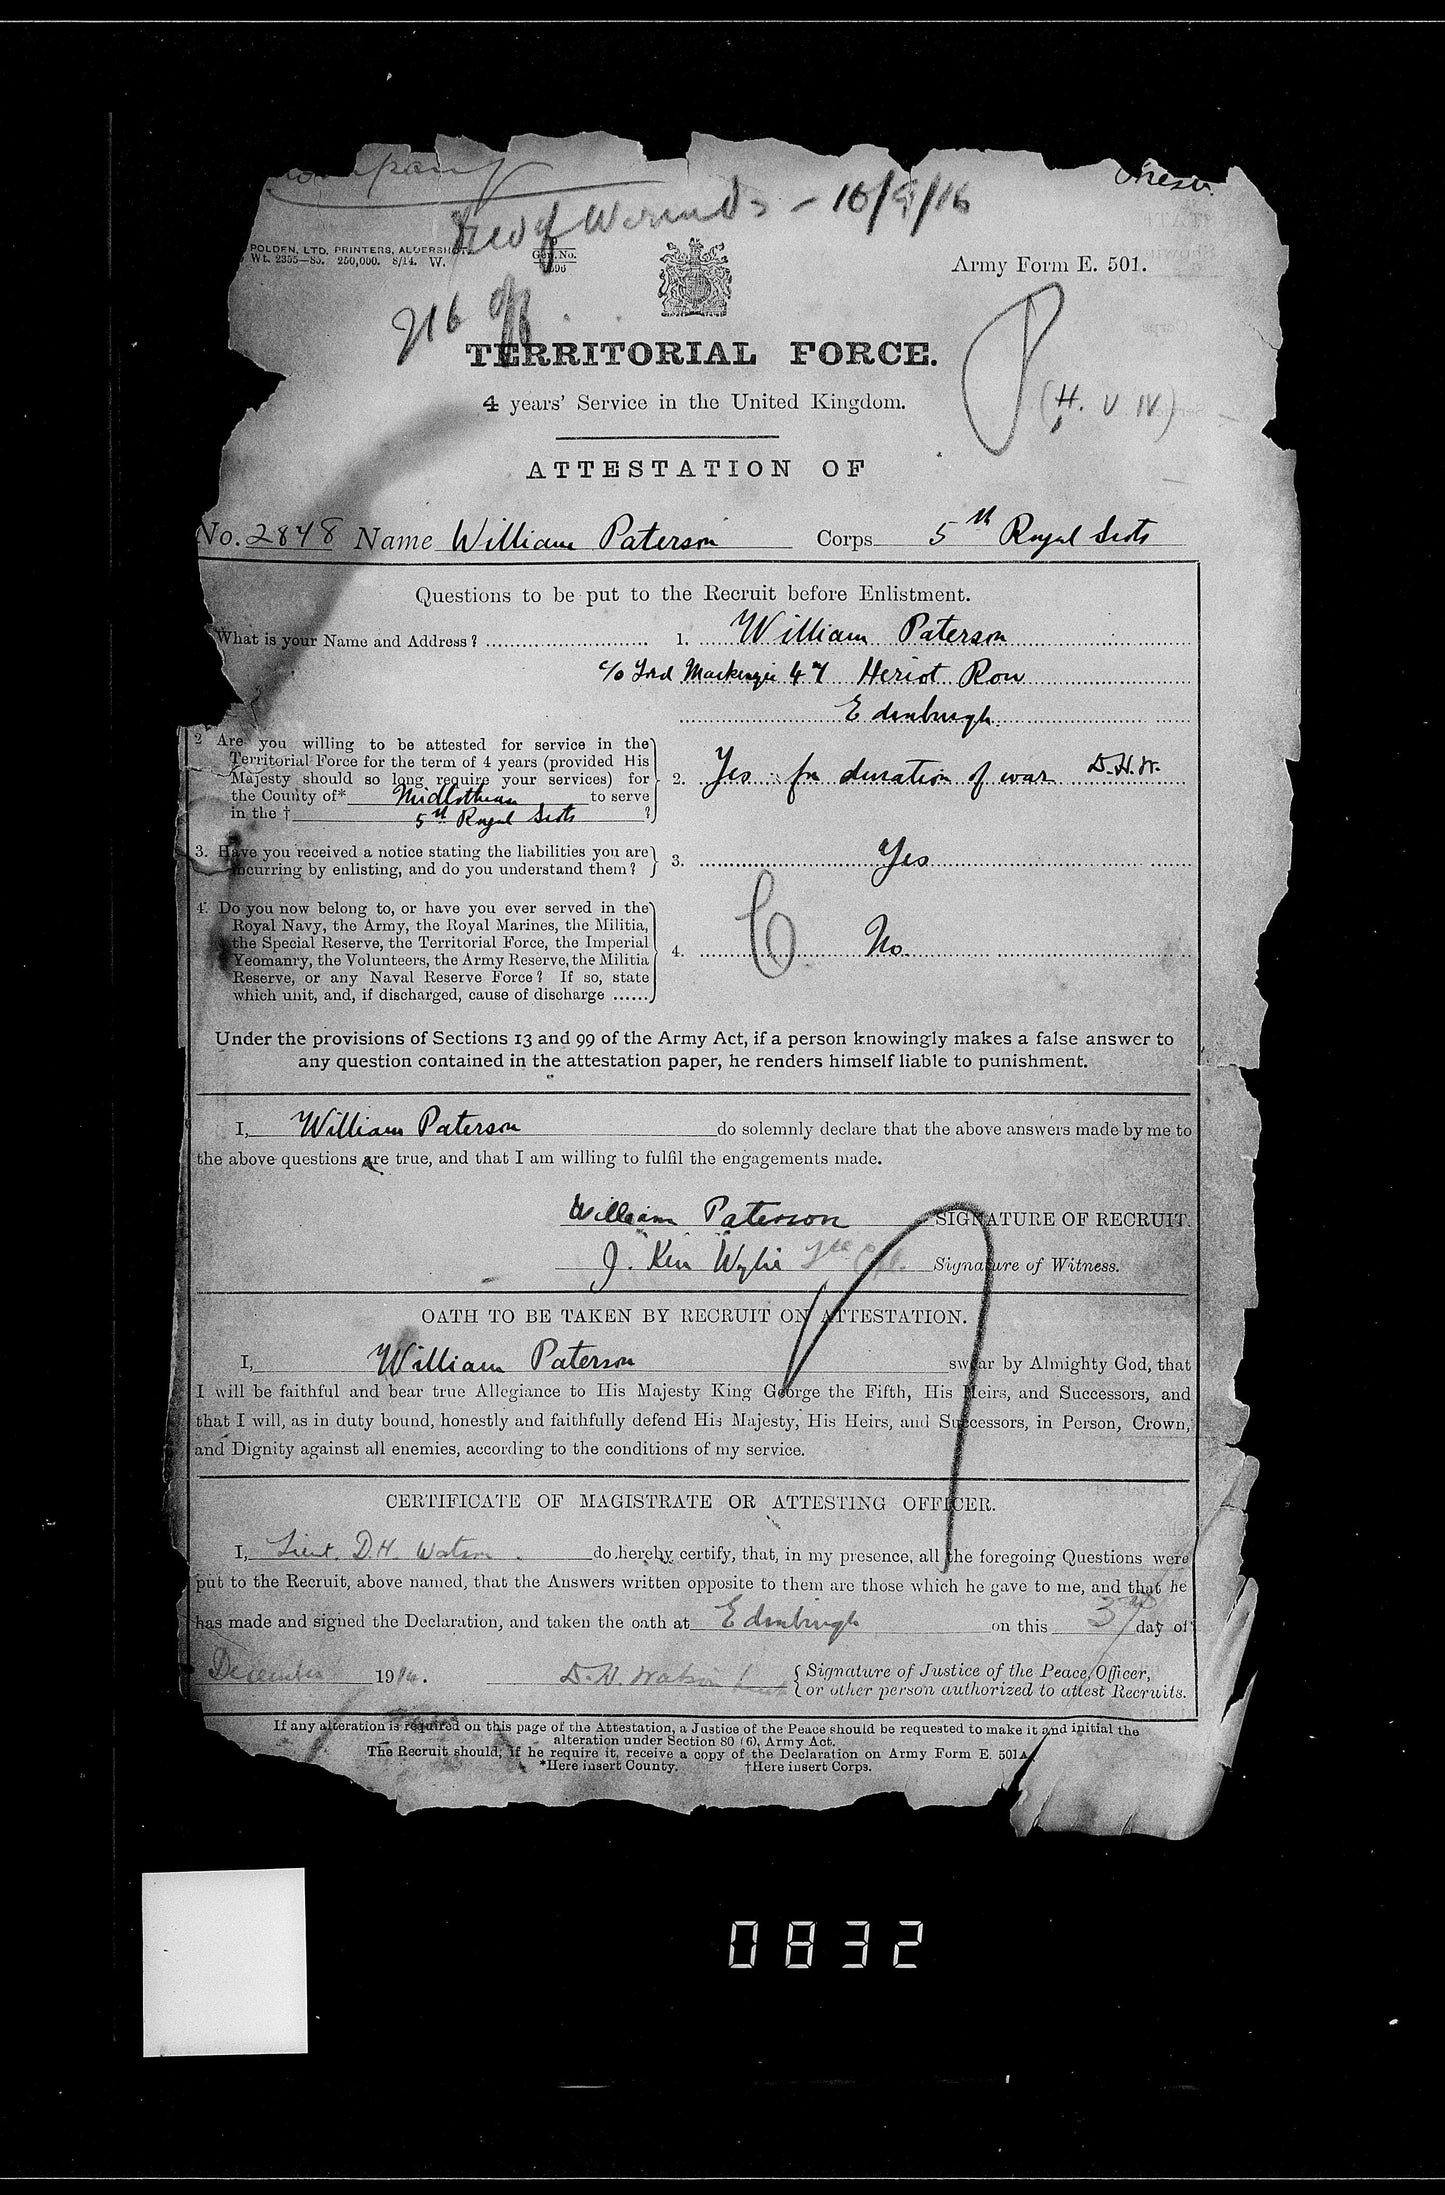 Company
Died of Wounds - 10/9/16
POLDEN, LTD. PRINTERS, ALDERSHOT.
Wt. 2355—85. 250,000. 8/14. W.
Gen. No.
Army Form E. 501.
TERRITORIAL FORCE.
4 years' Service in the United Kingdom.
(H. V IV)
ATTESTATION OF
No. 2848 Name William Paterson Corps 5th Royal Scots
Questions to be put to the Recruit before Enlistment.
What is your Name and Address? 1. William Paterson
c/o Lord Mackenzie 47 Heriot Row
Edinburgh.
2 Are you willing to be attested for service in the
Territorial Force for the term of 4 years (provided His
Majesty should so long require your services) for
the County of* Midlothian to serve
in the † 5th Royal Scots ?
2. Yes for duration of war D.H.W.
3. Have you received a notice stating the liabilities you are
incurring by enlisting, and do you understand them?
3. Yes
4. Do you now belong to, or have you ever served in the
Royal Navy, the Army, the Royal Marines, the Militia,
the Special Reserve, the Territorial Force, the Imperial
Yeomanry, the Volunteers, the Army Reserve, the Militia
Reserve, or any Naval Reserve Force? If so, state
which unit, and, if discharged, cause of discharge ......
4. No.
Under the provisions of Sections 13 and 99 of the Army Act, if a person knowingly makes a false answer to
any question contained in the attestation paper, he renders himself liable to punishment.
I, William Paterson do solemnly declare that the above answers made by me to
the above questions are true, and that I am willing to fulfil the engagements made.
William Paterson SIGNATURE OF RECRUIT.
J. Ken Wylie Signature of Witness.
OATH TO BE TAKEN BY RECRUIT ON ATTESTATION.
I, William Paterson swear by Almighty God, that
I will be faithful and bear true Allegiance to His Majesty King George the Fifth, His Heirs, and Successors, and
that I will, as in duty bound, honestly and faithfully defend His Majesty, His Heirs, and Successors, in Person, Crown,
and Dignity against all enemies, according to the conditions of my service.
CERTIFICATE OF MAGISTRATE OR ATTESTING OFFICER.
I, Lieut. D.H. Watson. do hereby certify, that, in my presence, all the foregoing Questions were
put to the Recruit, above named, that the Answers written opposite to them are those which he gave to me, and that he
has made and signed the Declaration, and taken the oath at Edinburgh on this 3rd day of
December 1914. D.H. Watson Lieut
Signature of Justice of the Peace, Officer,
or other person authorized to attest Recruits.
If any alteration is required on this page of the Attestation, a Justice of the Peace should be requested to make it and initial the
alteration under Section 80 (6), Army Act.
The Recruit should, if he require it, receive a copy of the Declaration on Army Form E. 501A.
*Here insert County. †Here insert Corps.
0832